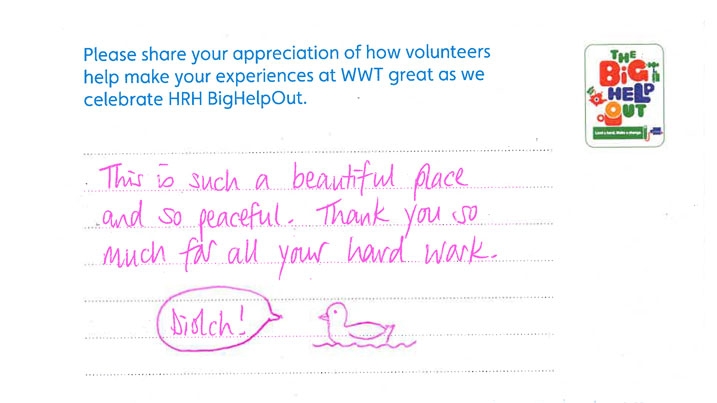 Please share your appreciation of how volunteers
help make your experiences at WWT great as we
celebrate HRH BigHelpOut.
THE
BIG
HELP
OUT
Lend a hand. Make a change.
This is such a beautiful place
and so peaceful. Thank you so
much for all your hard work.
Diolch!